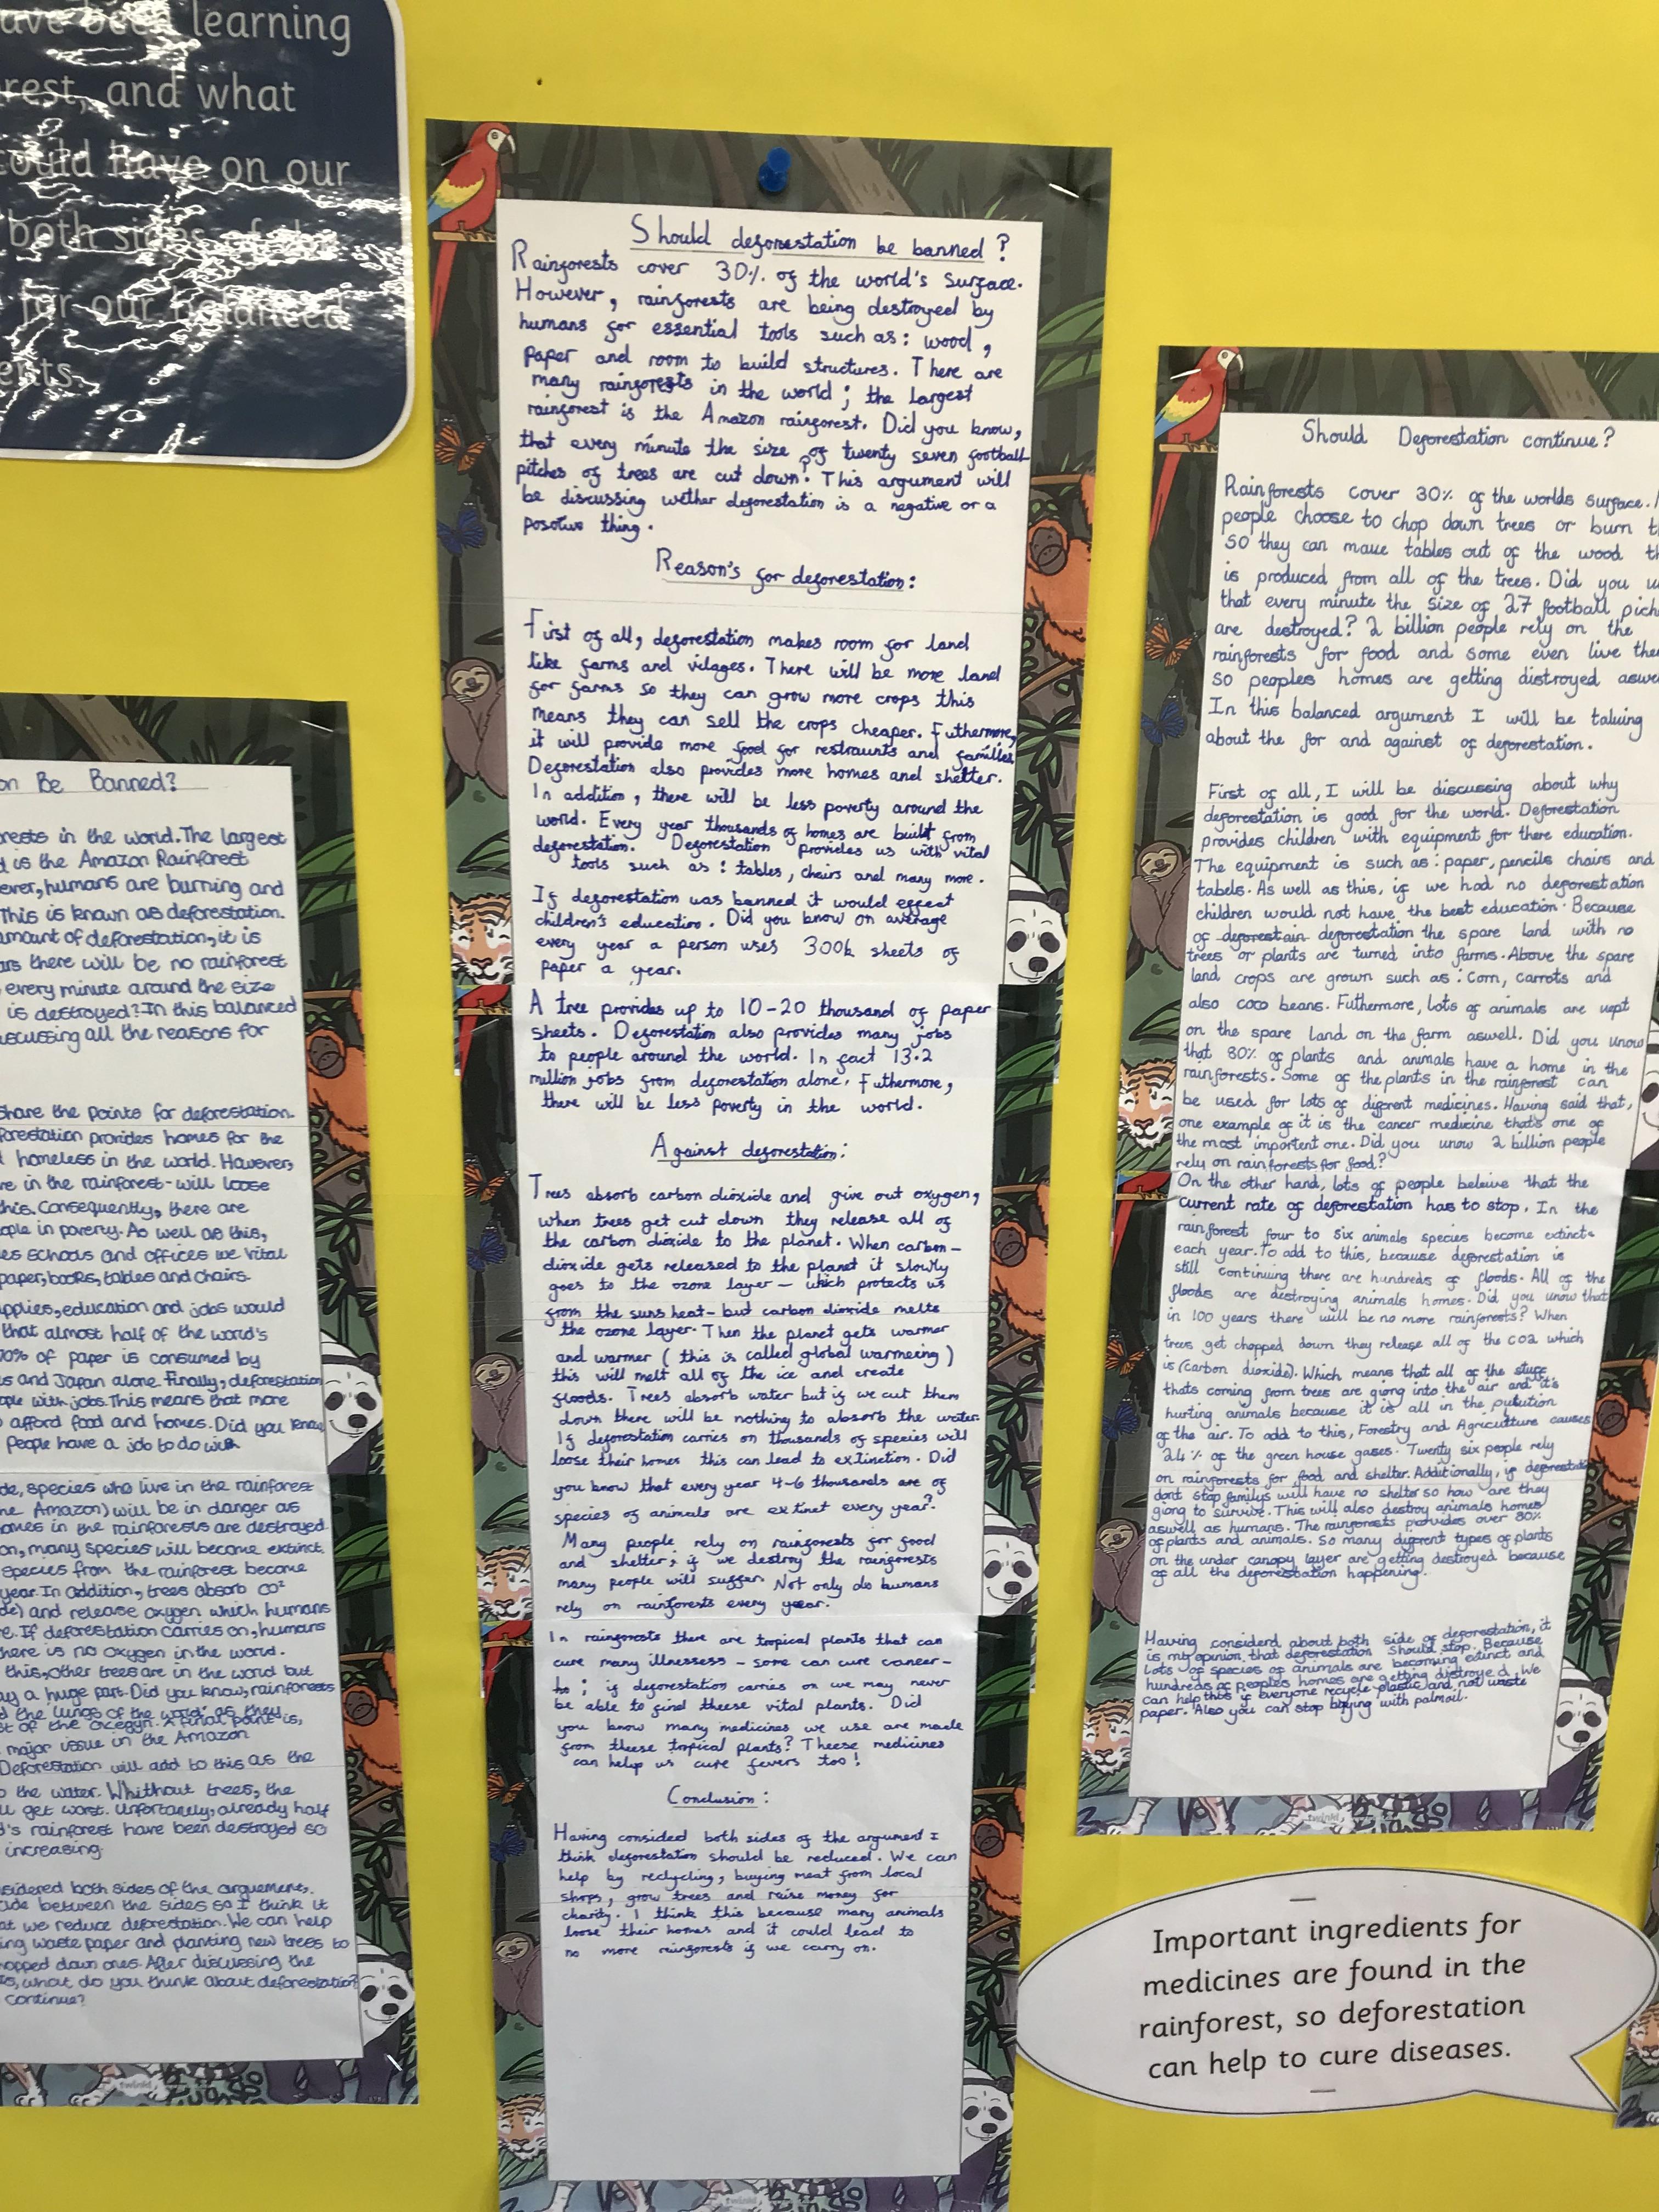 ave been learning
rest, and what
could have on our
both sides of the
for our balanced
ents.
on Be Banned?
rests in the world. The largest
d is the Amazon Rainforest
ever, humans are burning and
This is known as deforestation.
amount of deforestation, it is
ars there will be no rainforest
every minute around the size
is destroyed? In this balanced
iscussing all the reasons for
share the points for deforestation.
forestation provides homes for the
d homeless in the world. However,
re in the rainforest - will loose
this. Consequently, there are
ople in poverty. As well as this,
es schools and offices we vital
paper, books, tables and chairs.
pplies, education and jobs would
that almost half of the world's
70% of paper is consumed by
s and Japan alone. Finally, deforestation
ople with jobs. This means that more
o afford food and homes. Did you know
People have a job to do with
de, species who live in the rainforest
he Amazon) will be in danger as
omes in the rainforests are destroyed.
on, many species will become extinct.
species from the rainforest become
year. In addition, trees absorb CO²
de) and release oxygen which humans
e. If deforestation carries on, humans
here is no oxygen in the world.
this, other trees are in the world but
ay a huge part. Did you know, rainforests
d the lungs of the world, as they
st of the oxegyn. A final point is,
major issue in the Amazon
Deforestation will add to this as the
o the water. Whithout trees, the
ll get worst. Unfortanely, already half
d's rainforest have been destroyed so
increasing.
sidered both sides of the arguement,
cide between the sides so I think it
at we reduce deforestation. We can help
ing waste paper and planting new trees to
hopped down ones. After discussing the
ts, what do you think about deforestation?
continue?
Should deforestation be banned?
Rainforests cover 30% of the world's surface.
However, rainforests are being destroyed by
humans for essential tools such as: wood,
paper and room to build structures. There are
many rainforests in the world; the largest
rainforest is the Amazon rainforest. Did you know,
that every minute the size of twenty seven football
pitches of trees are cut down? This argument will
be discussing wether deforestation is a negative or a
posotive thing.
Reason's for deforestation:
First of all, deforestation makes room for land
like farms and vilages. There will be more land
for farms so they can grow more crops this
means they can sell the crops cheaper. Futhermore,
it will provide more food for restraunts and families.
Deforestation also provides more homes and shelter.
In addition, there will be less poverty around the
world. Every year thousands of homes are built from
deforestation. Deforestation provides us with vital
tools such as: tables, chairs and many more.
If deforestation was banned it would effect
children's education. Did you know on average
every year a person uses 300k sheets of
paper a year.
A tree provides up to 10-20 thousand of paper
sheets. Deforestation also provides many jobs
to people around the world. In fact 13.2
million jobs from deforestation alone. Futhermore,
there will be less poverty in the world.
Against deforestation:
Trees absorb carbon dioxide and give out oxygen,
when trees get cut down they release all of
the carbon dioxide to the planet. When carbon-
dioxide gets released to the planet it slowly
goes to the ozone layer - which protects us
from the suns heat - but carbon dioxide melts
the ozone layer. Then the planet gets warmer
and warmer (this is called global warmeing)
this will melt all of the ice and create
floods. Trees absorb water but if we cut them
down there will be nothing to absorb the water.
If deforestation carries on thousands of species will
loose their homes this can lead to extinction. Did
you know that every year 4-6 thousands are of
species of animals are extinct every year?
Many people rely on rainforests for food
and shelter; if we destroy the rainforests
many people will suffer. Not only do humans
rely on rainforests every year.
In rainforests there are tropical plants that can
cure many illnessess - some can cure cancer -
to; if deforestation carries on we may never
be able to find theese vital plants. Did
you know many medicines we use are made
from theese tropical plants? Theese medicines
can help us cure fevers too!
Conclusion:
Having consided both sides of the argument I
think deforestation should be reduced. We can
help by reclycling, buying meat from local
shops, grow trees and raise money for
charity. I think this because many animals
loose their homes and it could lead to
no more rainforests if we carry on.
Should Deforestation continue?
Rainforests cover 30% of the worlds surface.
people choose to chop down trees or burn th
so they can make tables out of the wood th
is produced from all of the trees. Did you k
that every minute the size of 27 football pich
are destroyed? 2 billion people rely on the
rainforests for food and some even live the
so peoples homes are getting distroyed aswe
In this balanced argument I will be talking
about the for and against of deforestation.
First of all, I will be discussing about why
deforestation is good for the world. Deforestation
provides children with equipment for there education.
The equipment is such as: paper, pencils chairs and
tabels. As well as this, if we had no deforestation
children would not have the best education. Because
of deforestain deforestation the spare land with no
trees or plants are turned into farms. Above the spare
land crops are grown such as: corn, carrots and
also coco beans. Futhermore, lots of animals are kept
on the spare land on the farm aswell. Did you know
that 80% of plants and animals have a home in the
rainforests. Some of the plants in the rainforest can
be used for lots of different medicines. Having said that,
one example of it is the cancer medicine that's one of
the most importent one. Did you know 2 billion people
rely on rainforests for food?
On the other hand, lots of people beleive that the
current rate of deforestation has to stop. In the
rainforest four to six animals species become extinct
each year. To add to this, because deforestation is
still continuing there are hundreds of floods. All of the
floods are destroying animals homes. Did you know that
in 100 years there will be no more rainforests? When
trees get chopped down they release all of the CO2 which
is (carbon dioxide). Which means that all of the stuff
thats coming from trees are giong into the air and it's
hurting animals because it is all in the
of the air. To add to this, Forestry and Agriculture causes
24% of the green house gases. Twenty six people rely
on rainforests for food and shelter. Additionally, if deforestation
dont stop familys will have no shelter so how are they
giong to survive. This will also destroy animals homes
aswell as humans. The rainforests provides over 80%
of plants and animals. So many different types of plants
on the under canopy layer are getting destroyed because
of all the deforestation happening.
Having considerd about both side of deforestation, it
is my opinion that deforestation should stop. Because
lots of species of animals are becoming extinct and
hundreds of peoples homes are getting distroyed. We
can help this if everyone recycle plastic and not waste
paper. Also you can stop buying with palmoil.
Important ingredients for
medicines are found in the
rainforest, so deforestation
can help to cure diseases.
twinkl
twinkl
twinkl